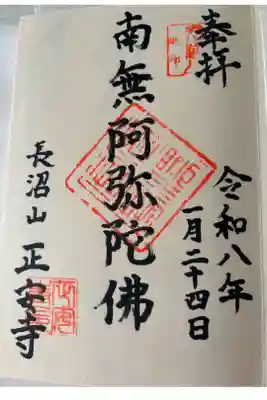 奉拝
令和八年
一月二十四日
南無阿弥陀佛
長沼山 正安寺